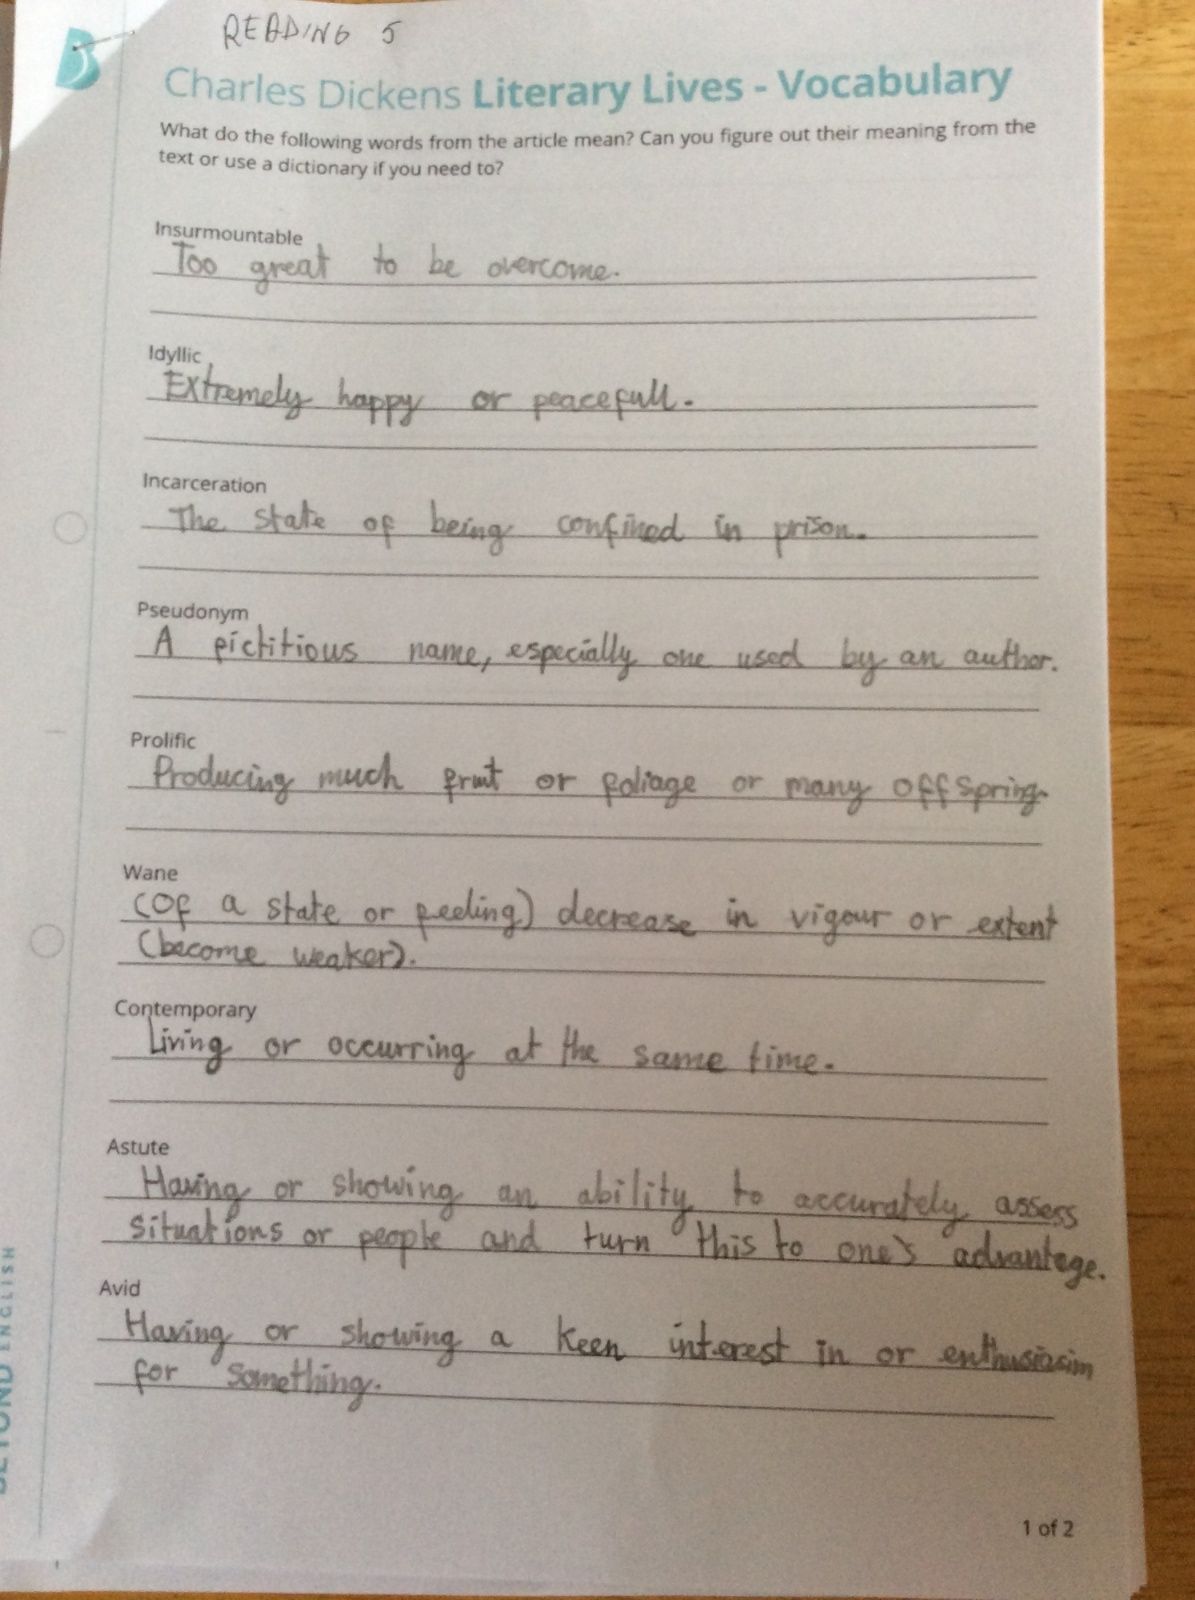 READING 5
Charles Dickens Literary Lives - Vocabulary
What do the following words from the article mean? Can you figure out their meaning from the
text or use a dictionary if you need to?
Insurmountable
Too great to be overcome.
Idyllic
Extremely happy or peacefull.
Incarceration
The state of being confined in prison.
Pseudonym
A fictitious name, especially one used by an author.
Prolific
Producing much fruit or foliage or many offspring.
Wane
(Of a state or feeling) decrease in vigour or extent
(become weaker).
Contemporary
Living or occurring at the same time.
Astute
Having or showing an ability to accurately assess
situations or people and turn this to one's advantage.
Avid
Having or showing a keen interest in or enthusiasim
for something.
1 of 2
BEYOND ENGLISH